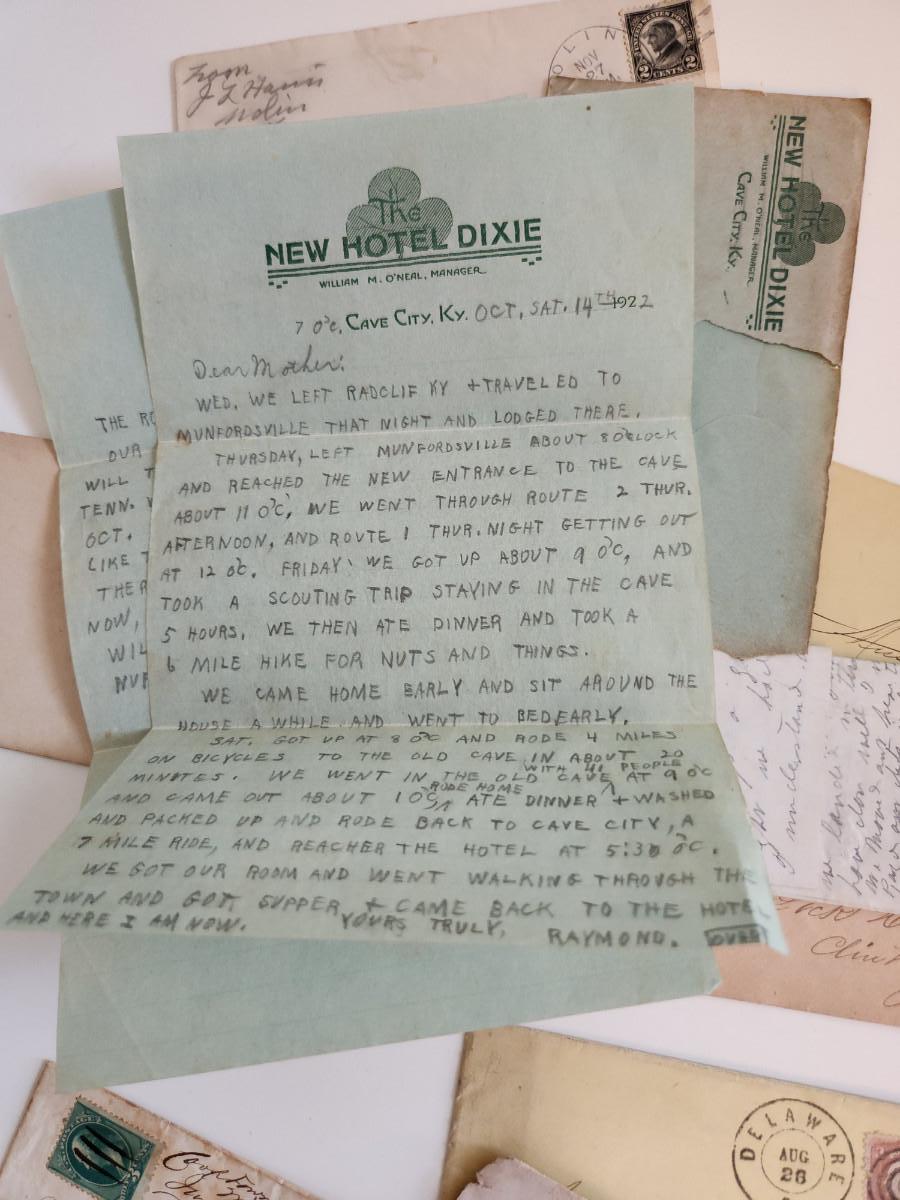 From
J L Harris
Nolin
OLIN
NOV
27
UNITED STATES POSTAGE
2 CENTS 2
The
NEW HOTEL DIXIE
WILLIAM M. O'NEAL, MANAGER
CAVE CITY, KY.
The
NEW HOTEL DIXIE
WILLIAM M. O'NEAL, MANAGER
7 O'C, CAVE CITY, KY. OCT, SAT. 14TH 1922
Dear Mother:
WED. WE LEFT RADCLIF KY + TRAVELED TO
MUNFORDSVILLE THAT NIGHT AND LODGED THERE.
THURSDAY, LEFT MUNFORDSVILLE ABOUT 8 O'CLOCK
AND REACHED THE NEW ENTRANCE TO THE CAVE
ABOUT 11 O'C, WE WENT THROUGH ROUTE 2 THUR.
AFTERNOON, AND ROUTE 1 THUR. NIGHT GETTING OUT
AT 12 O'C. FRIDAY WE GOT UP ABOUT 9 O'C, AND
TOOK A SCOUTING TRIP STAYING IN THE CAVE
5 HOURS, WE THEN ATE DINNER AND TOOK A
6 MILE HIKE FOR NUTS AND THINGS.
WE CAME HOME EARLY AND SIT AROUND THE
HOUSE A WHILE AND WENT TO BED EARLY.
SAT. GOT UP AT 8 O'C AND RODE 4 MILES
ON BICYCLES TO THE OLD CAVE IN ABOUT 20
WITH 41 PEOPLE
MINUTES. WE WENT IN THE OLD CAVE ^ AT 9 O'C
RODE HOME
AND CAME OUT ABOUT 1 O'C, ^ ATE DINNER + WASHED
AND PACKED UP AND RODE BACK TO CAVE CITY, A
7 MILE RIDE, AND REACHER THE HOTEL AT 5:30 O'C.
WE GOT OUR ROOM AND WENT WALKING THROUGH THE
TOWN AND GOT SUPPER, + CAME BACK TO THE HOTEL
AND HERE I AM NOW. YOURS TRULY, RAYMOND. OVER
THE RO
OUR
WILL T
TENN.
OCT.
LIKE T
THER
NOW,
WIL
NUF
understand
Clin
DELAWARE
AUG
28